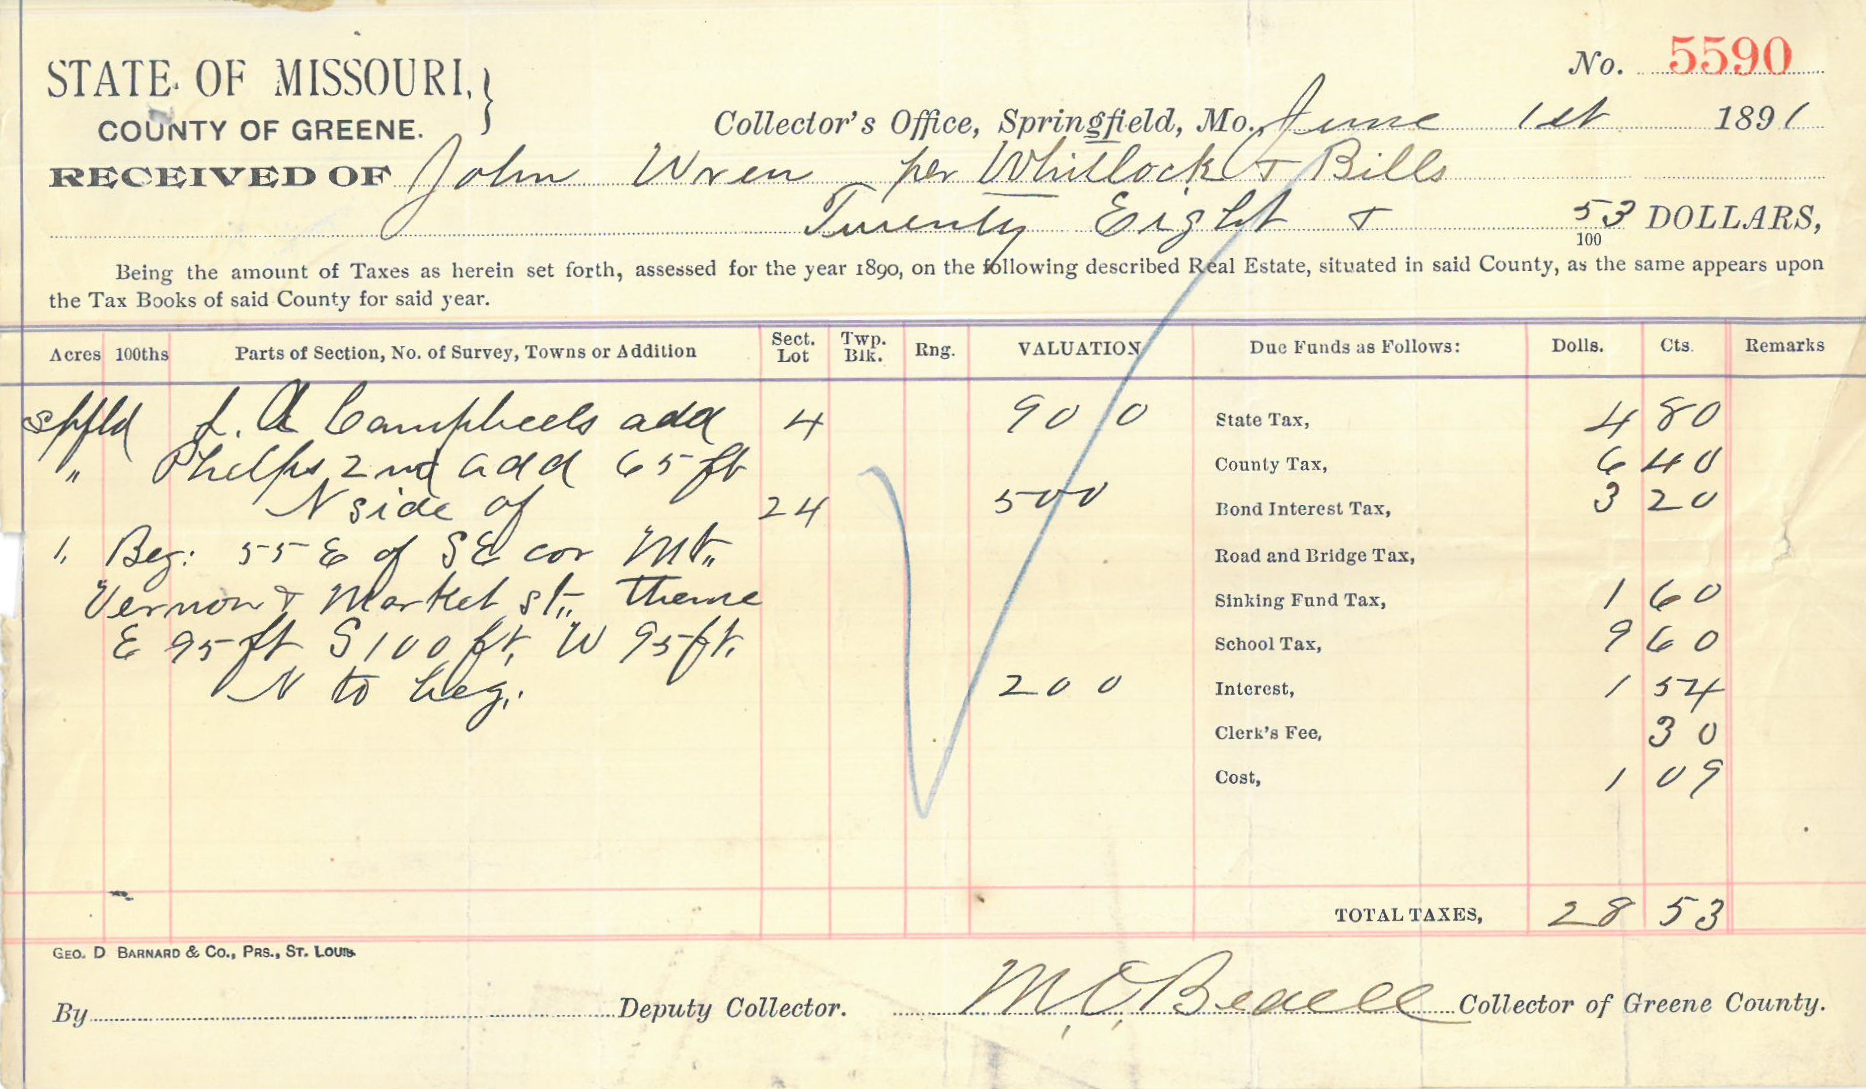 No. 5590
STATE OF MISSOURI, }
COUNTY OF GREENE.
Collector's Office, Springfield, Mo., June 1st 1891
RECEIVED OF John Wren per Whitlock & Bills
Twenty Eight & 53/100 DOLLARS,
Being the amount of Taxes as herein set forth, assessed for the year 1890, on the following described Real Estate, situated in said County, as the same appears upon
the Tax Books of said County for said year.
Acres 100ths Parts of Section, No. of Survey, Towns or Addition Sect. Lot Twp. Blk. Rng. VALUATION Due Funds as Follows: Dolls. Cts. Remarks
Spfld L. A Campbells add 4 900 State Tax, 4 80
" Phelps 2nd add 65 ft County Tax, 6 40
N side of 24 500 Bond Interest Tax, 3 20
" Beg: 55 E of SE cor Mt. Road and Bridge Tax,
Vernon & Market st., thence Sinking Fund Tax, 1 60
E 95 ft S 100 ft, W 95 ft. School Tax, 9 60
N to beg. 200 Interest, 1 54
Clerk's Fee, 30
Cost, 1 09
TOTAL TAXES, 28 53
GEO. D BARNARD & CO., PRS., ST. LOUIS.
By Deputy Collector. M. O. Bedell Collector of Greene County.